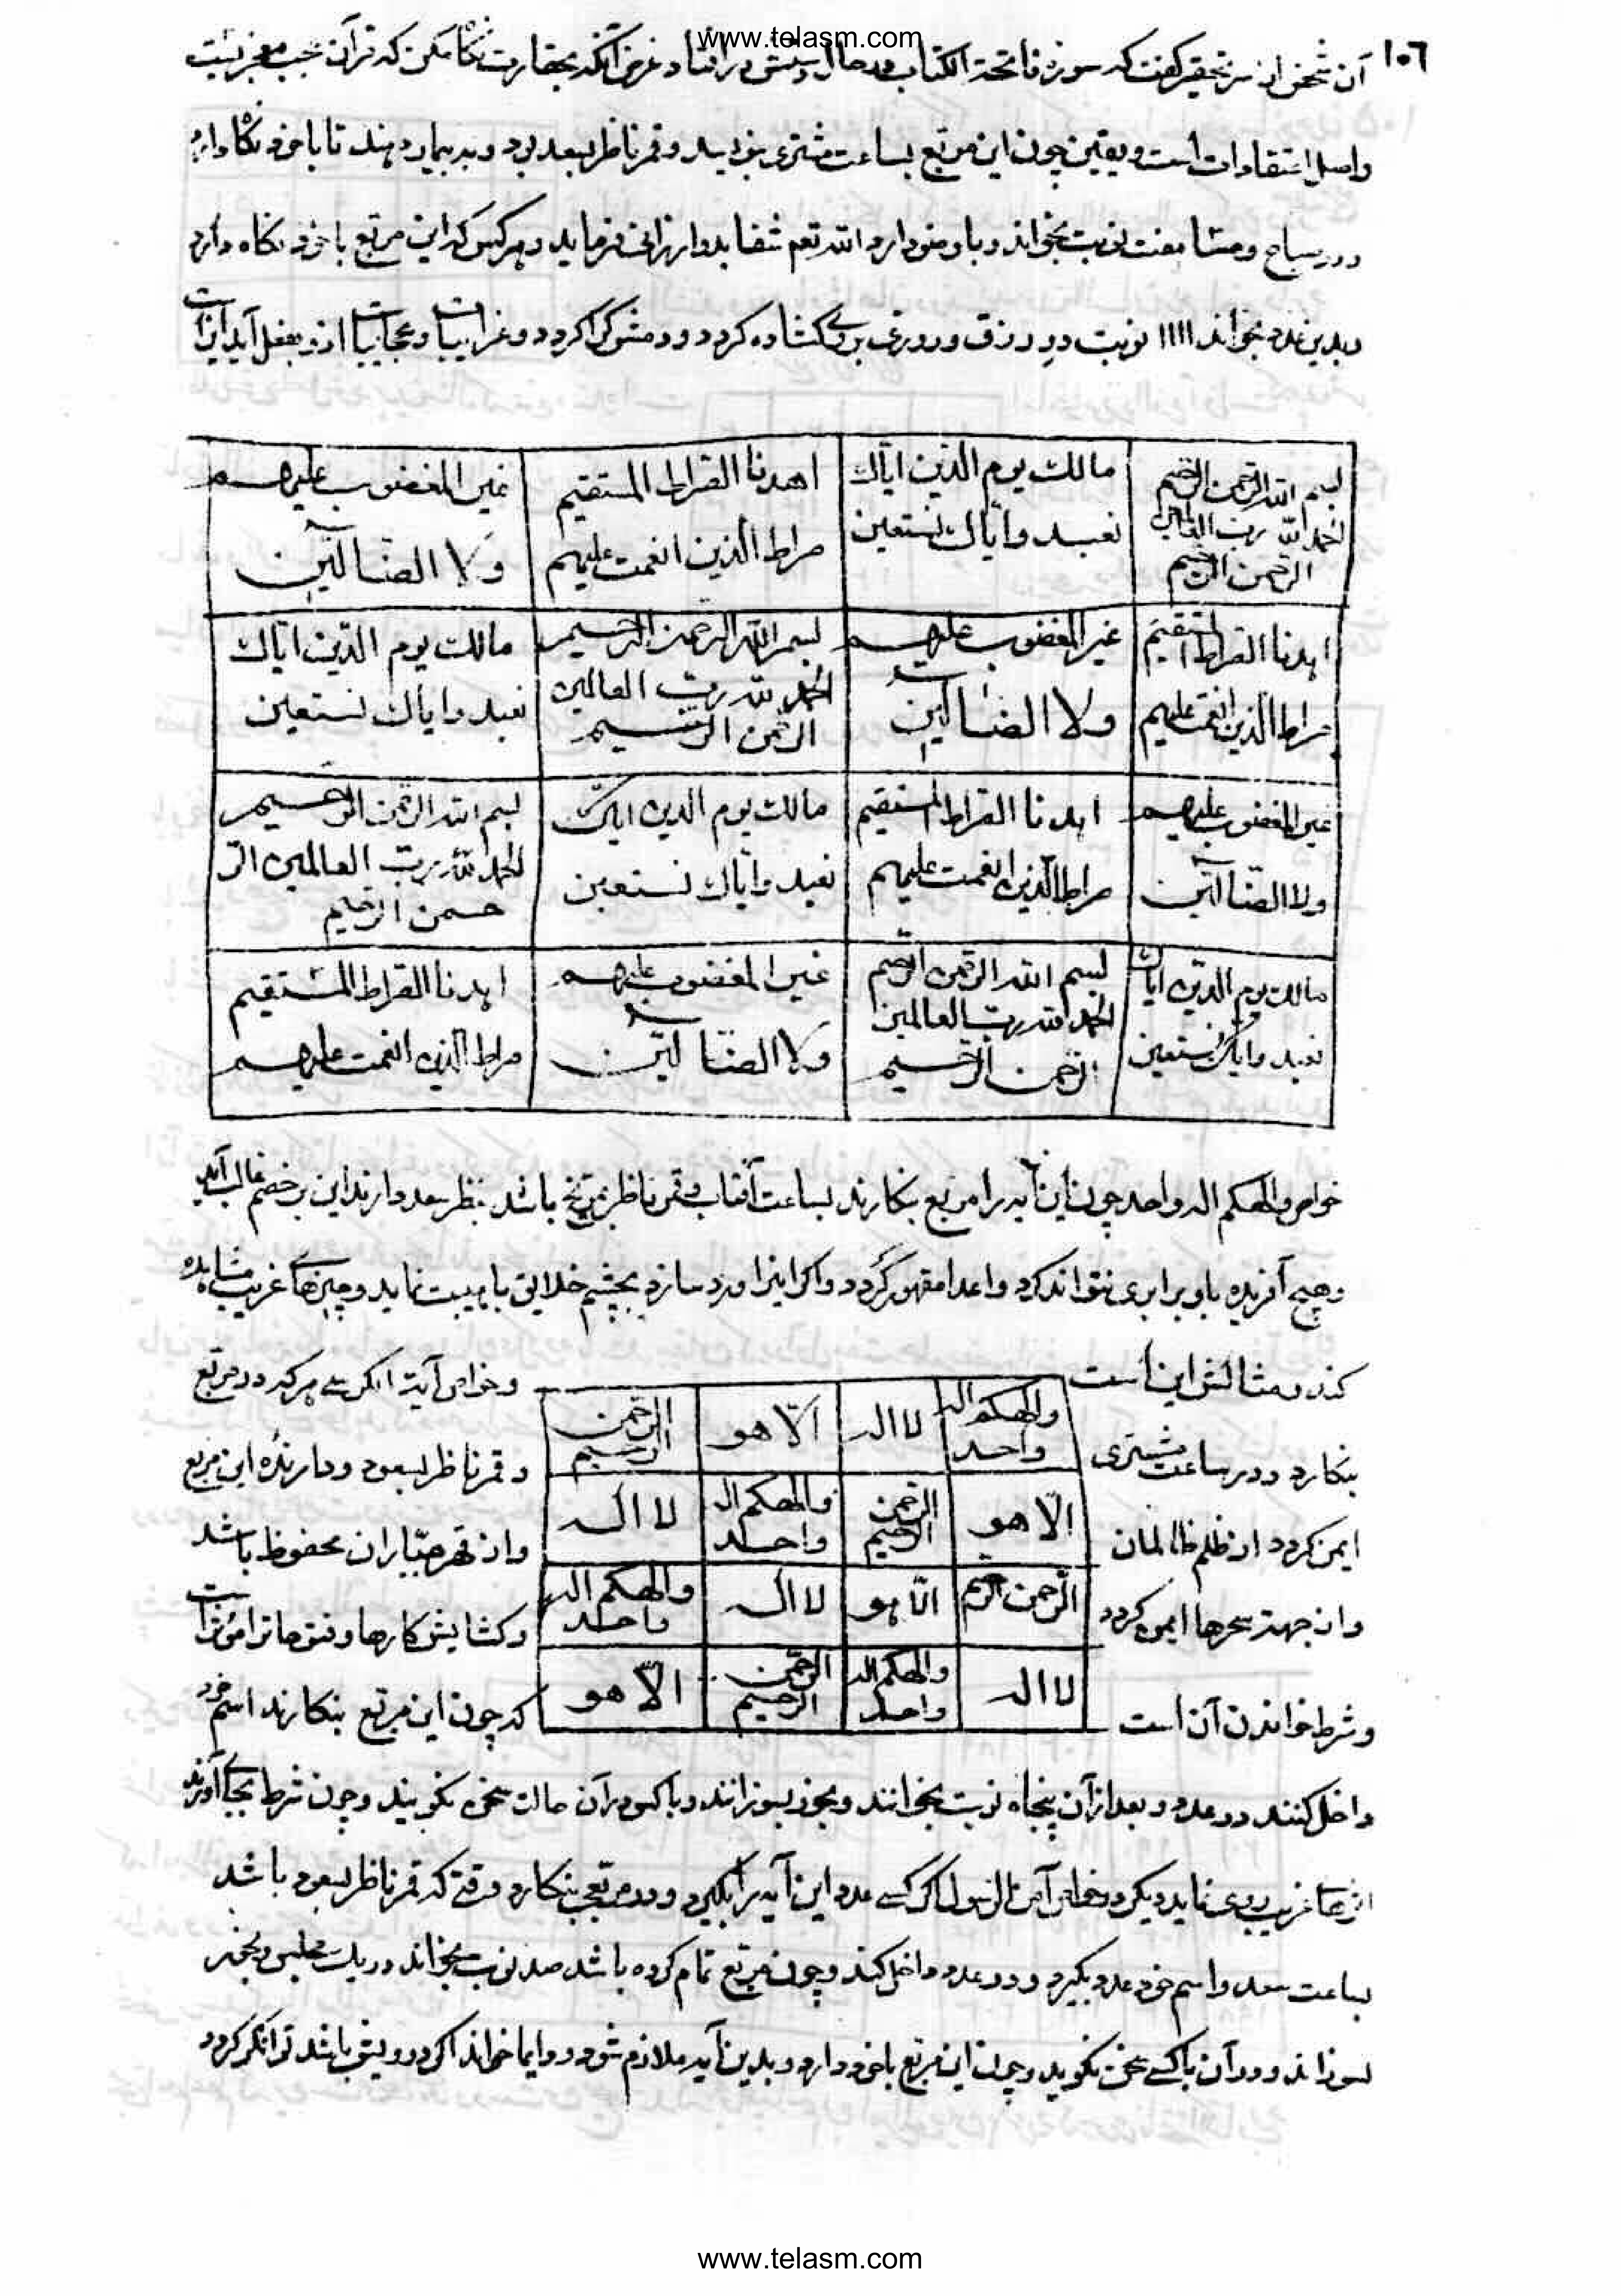 www.telasm.com
١٠٦
آن شخص از سر تحقیر گفت که سوره فاتحة الکتاب در حال ریشش در افتاد غرض آنکه بحقارت نگاه مکن که قرآن عجب معجزیست
واصل اعتقادات است و یقین چون این مربع بساعت مشتری بنویسد و قمر ناظر بسعد بود و به بیمار دهند تا با خود نگاه دارد
و در صباح و مسا هفت نوبت بخواند و باو منو دارد الله تعم شفا بدو ارزانی فرماید و هر کس که این مربع با خود نگاه دارد
و بدین عدد بخواند ١١١١ نوبت در رزق و روزی بروی گشاده کردد و غرایبات و عجایبات ازو بفعل آید اینست
بسم الله الرحمن الرحیم
الحمد لله رب العالمین
الرحمن الرحیم
مالک یوم الدین ایاک
نعبد وایاک نستعین
اهدنا الصراط المستقیم
صراط الذین انعمت علیهم
غیر المغضوب علیهم
ولا الضالین
اهدنا الصراط المستقیم
صراط الذین انعمت علیهم
غیر المغضوب علیهم
ولا الضالین
بسم الله الرحمن الرحیم
الحمد لله رب العالمین
الرحمن الرحیم
مالک یوم الدین ایاک
نعبد وایاک نستعین
غیر المغضوب علیهم
ولا الضالین
اهدنا الصراط المستقیم
صراط الذین انعمت علیهم
مالک یوم الدین ایاک
نعبد وایاک نستعین
بسم الله الرحمن الرحیم
الحمد لله رب العالمین الر
حمن الرحیم
مالک یوم الدین ایاک
نعبد وایاک نستعین
بسم الله الرحمن الرحیم
الحمد لله رب العالمین
الرحمن الرحیم
غیر المغضوب علیهم
ولا الضالین
اهدنا الصراط المستقیم
صراط الذین انعمت علیهم
خواص والهکم اله واحد چون این آیه را مربع بنکارند بساعت آفتاب و قمر ناظر بمریخ باشد بنظر سعد دارنده این بر خصم غالب آید
و هیچ آفریده باو برابری نتواند کرد و اعدا مقهور گردد و اکر اینرا ورد سازد بچشم خلایق با هیبت نماید و چیزهای غریب مشاهده
کند و مثالش این است
والهکم اله واحد
لا اله
الا هو
الرحمن الرحیم
و خواص آیة الکرسی هرکه در مربع
بنکارد و در ساعت مشتری
الا هو
الرحمن الرحیم
والهکم اله واحد
لا اله
و قمر ناظر بسعود و دارنده این مربع
ایمن کردد از ظلم ظالمان
الرحمن الرحیم
الا هو
لا اله
والهکم اله واحد
و از قهر جباران محفوظ باشد
و از جهت سحرها ایمن کردد
لا اله
والهکم اله واحد
الرحمن الرحیم
الا هو
و کشایش کارها و فتوحاترا مؤثراست
و شرط خواندن آن است
که چون این مربع بنکارند اسم خود
داخل کنند در عدد و بعد از آن پنجاه نوبت بخوانند و بخور بسوزانند و با کس در آن حالت سخن نکویند و چون شرط بجای آورند
اثرهای غریب روی نماید دیکر خواص آمن الرسول اکر کسی عدد این آیه را بگیرد و در مربعی بنکارد وقتی که قمر ناظر بسعود باشد
بساعت سعد و اسم خود عدد بکیرد و در عدد داخل کند و چون مربع تمام کرده باشد صد نوبت بخواند در یک مجلس و بخور
بسوزاند و در آن با کسی سخن نکوید و چون این مربع با خود دارد و بدین آیه ملازم شود و دایما خواند اکر درویش باشد توانگر کردد
www.telasm.com